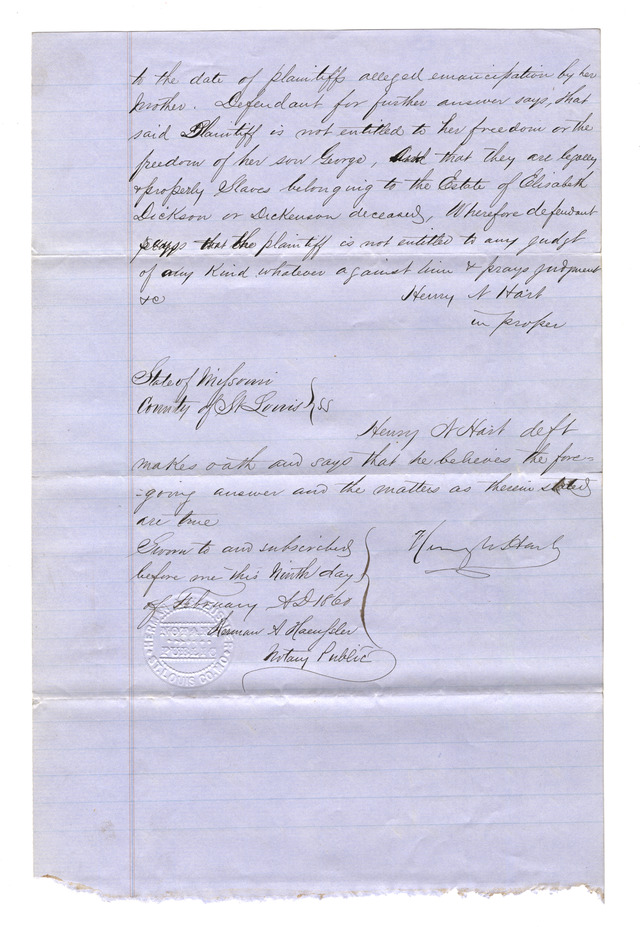 to the date of plaintiffs alleged emancipation by her
mother. Defendant for further answer says, that
said Plaintiff is not entitled to her freedom or the
freedom of her son George, and that they are legally
& properly Slaves belonging to the Estate of Elisabeth
Dickson or Dickenson deceased, Wherefore defendant
says that the plaintiff is not entitled to any judgt
of any Kind whatever against him & prays judgment
&c
Henry N Hart
in proper
State of Missouri
County of St Louis } SS
Henry N Hart deft
makes oath and says that he believes the fore-
-going answer and the matters as therein stated
are true
Sworn to and subscribed
before me this Ninth day
of February AD 1860
Henry N Hart
Herman A Haeussler
Notary Public
NOTARY
PUBLIC
ST LOUIS CO MO